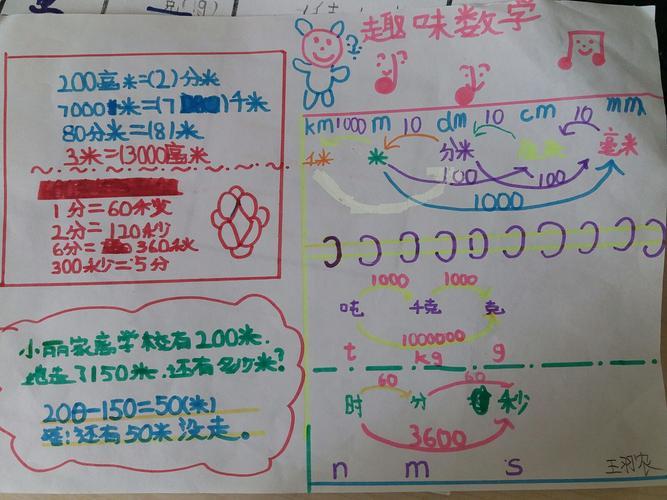 (g)
趣味数学
200毫米=(2)分米
7000米=(7)千米
80分米=(8)米
3米=(3000毫米
1分=60秒
2分=120秒
6分=360秒
300秒=5分
小丽家离学校有200米.
她走了150米.还有多少米?
200-150=50(米)
答:还有50米没走。
km 1000 m 10 dm 10 cm 10 mm
千米 米 分米 厘米 毫米
100 100
1000
1000 1000
吨 千克 克
1000000
t kg g
60 60
时 分 秒
3600
n m s